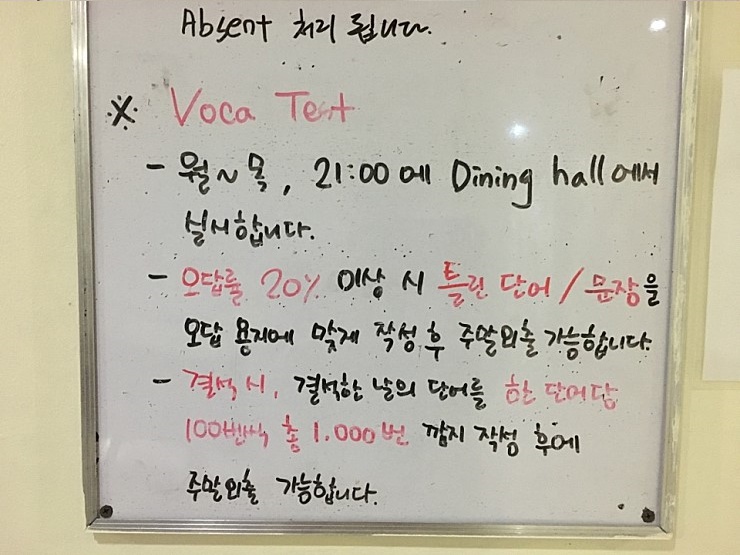 Absent 처리 됩니다.
※ Voca Test
- 월~목, 21:00 에 Dining hall 에서
실시합니다.
- 오답률 20% 이상 시 틀린 단어 / 문장을
오답 용지에 맞게 작성 후 주말외출 가능합니다.
- 결석 시, 결석한 날의 단어를 한 단어당
100번씩 총 1.000번 깜지 작성 후에
주말외출 가능합니다.